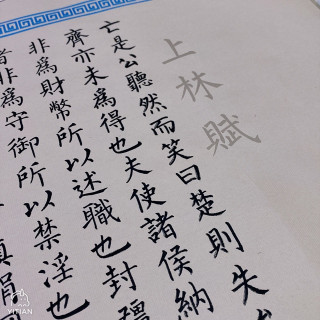 上林賦
亡是公聽然而笑曰楚則失
齊亦未爲得也夫使諸侯納
非爲財幣所以述職也封疆
者非爲守御所以禁淫也
YITIAN